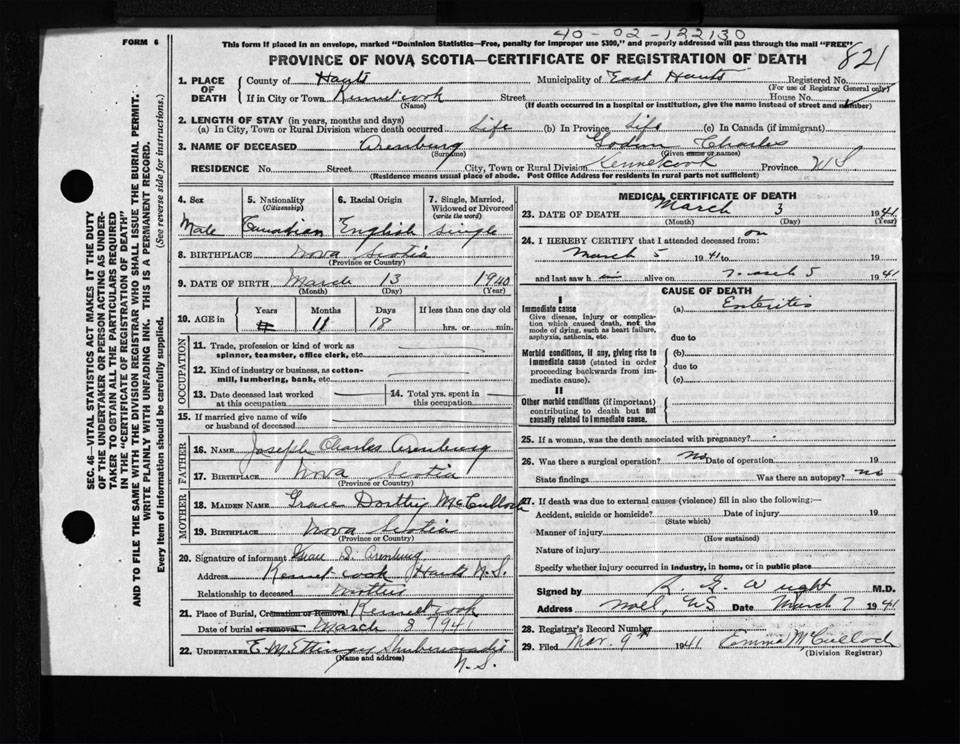 40-02-122130
FORM 6
This form if placed in an envelope, marked "Dominion Statistics—Free, penalty for improper use $300," and properly addressed will pass through the mail "FREE"
821
PROVINCE OF NOVA SCOTIA—CERTIFICATE OF REGISTRATION OF DEATH
SEC. 46—VITAL STATISTICS ACT MAKES IT THE DUTY
OF THE UNDERTAKER OR PERSON ACTING AS UNDER-
TAKER TO OBTAIN ALL THE PARTICULARS REQUIRED
IN THE "CERTIFICATE OF REGISTRATION OF DEATH"
AND TO FILE THE SAME WITH THE DIVISION REGISTRAR WHO SHALL ISSUE THE BURIAL PERMIT.
WRITE PLAINLY WITH UNFADING INK. THIS IS A PERMANENT RECORD.
Every item of information should be carefully supplied. (See reverse side for instructions.)
1. PLACE OF DEATH County of Hants Municipality of East Hants Registered No.
(For use of Registrar General only)
If in City or Town Kennetcook Street House No.
(Name) (If death occurred in a hospital or institution, give the name instead of street and number)
2. LENGTH OF STAY (in years, months and days)
(a) In City, Town or Rural Division where death occurred Life (b) In Province Life (c) In Canada (if immigrant)
3. NAME OF DECEASED Arenburg Charles
(Surname) (Given name or names)
RESIDENCE No. Street City, Town or Rural Division Kennetcook Province N.S.
(Residence means usual place of abode. Post Office Address for residents in rural parts not sufficient)
4. Sex Male
5. Nationality (Citizenship) Canadian
6. Racial Origin English
7. Single, Married, Widowed or Divorced (write the word) Single
8. BIRTHPLACE Nova Scotia
(Province or Country)
9. DATE OF BIRTH March 13 1940
(Month) (Day) (Year)
10. AGE in Years Months Days If less than one day old
11 18 hrs. or min.
OCCUPATION
11. Trade, profession or kind of work as spinner, teamster, office clerk, etc.
12. Kind of industry or business, as cotton-mill, lumbering, bank, etc.
13. Date deceased last worked at this occupation
14. Total yrs. spent in this occupation
15. If married give name of wife or husband of deceased
FATHER
16. NAME Joseph Charles Arenburg
17. BIRTHPLACE Nova Scotia
(Province or Country)
MOTHER
18. MAIDEN NAME Grace Dorthy McCulloch
19. BIRTHPLACE Nova Scotia
(Province or Country)
20. Signature of informant D. Arenburg
Address Kennetcook Hants N.S.
Relationship to deceased Mother
21. Place of Burial, Cremation or Removal Kennetcook
Date of burial or removal March 8 1941
22. UNDERTAKER E. M. Ettinger Shubenacadie N.S.
(Name and address)
MEDICAL CERTIFICATE OF DEATH
23. DATE OF DEATH March 3 1941
(Month) (Day) (Year)
24. I HEREBY CERTIFY that I attended deceased from: on
March 5 1941 to 19
and last saw h im alive on March 5 1941
CAUSE OF DEATH
I
Immediate cause
Give disease, injury or complication which caused death, not the mode of dying, such as heart failure, asphyxia, asthenia, etc.
(a) Enteritis
due to
Morbid conditions, if any, giving rise to immediate cause (stated in order proceeding backwards from immediate cause).
(b)
due to
(c)
II
Other morbid conditions (if important) contributing to death but not causally related to immediate cause.
25. If a woman, was the death associated with pregnancy?
26. Was there a surgical operation? No Date of operation 19
State findings Was there an autopsy? no
27. If death was due to external causes (violence) fill in also the following:—
Accident, suicide or homicide? Date of injury 19
(State which)
Manner of injury
(How sustained)
Nature of injury
Specify whether injury occurred in industry, in home, or in public place
Signed by R. G. Wright M.D.
Address Noel, NS Date March 7 1941
28. Registrar's Record Number
29. Filed Mar. 9th 1941 Emma McCulloch
(Division Registrar)